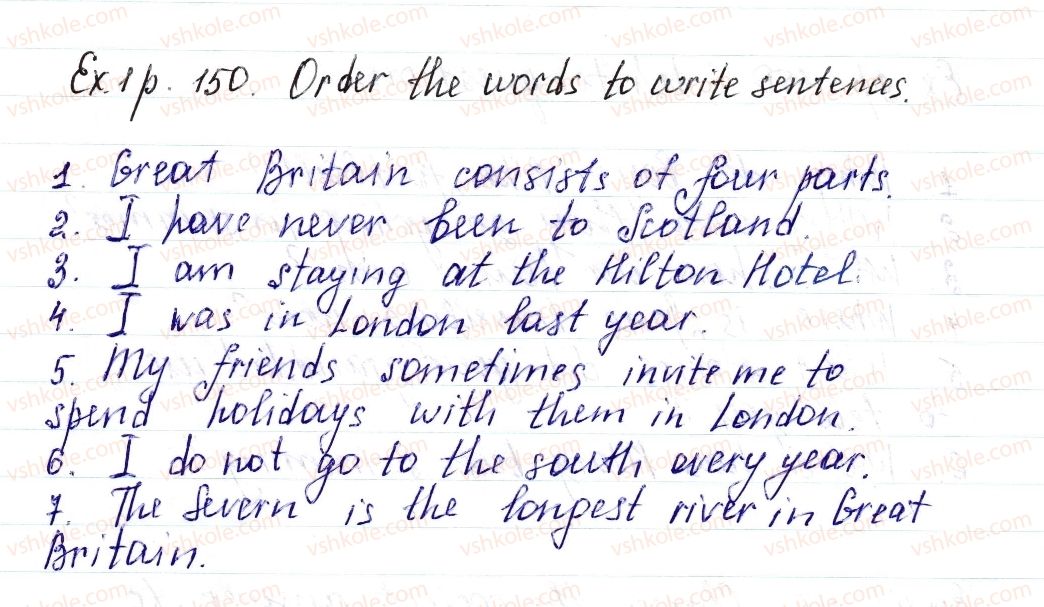 Ex.1 p. 150. Order the words to write sentences.
1. Great Britain consists of four parts.
2. I have never been to Scotland.
3. I am staying at the Hilton Hotel.
4. I was in London last year.
5. My friends sometimes invite me to
spend holidays with them in London.
6. I do not go to the south every year.
7. The Severn is the longest river in Great
Britain.